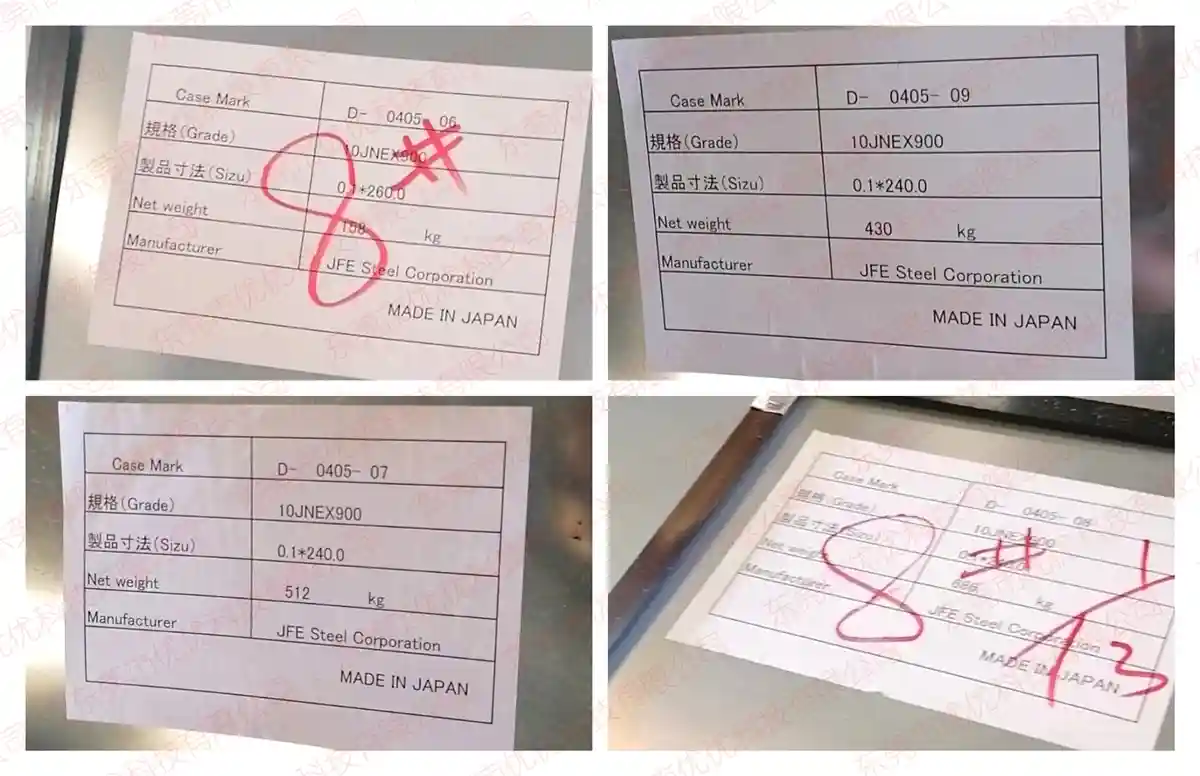 Case Mark D- 0405- 06
規格(Grade) 10JNEX900
製品寸法(Sizu) 0.1*260.0
Net weight 158 kg
Manufacturer JFE Steel Corporation
MADE IN JAPAN
8#
Case Mark D- 0405- 09
規格(Grade) 10JNEX900
製品寸法(Sizu) 0.1*240.0
Net weight 430 kg
Manufacturer JFE Steel Corporation
MADE IN JAPAN
Case Mark D- 0405- 07
規格(Grade) 10JNEX900
製品寸法(Sizu) 0.1*240.0
Net weight 512 kg
Manufacturer JFE Steel Corporation
MADE IN JAPAN
Case Mark D- 0405- 08
規格(Grade) 10JNEX900
製品寸法(Sizu)
Net weight kg
Manufacturer JFE Steel Corporation
MADE IN JAPAN
8# 1/3